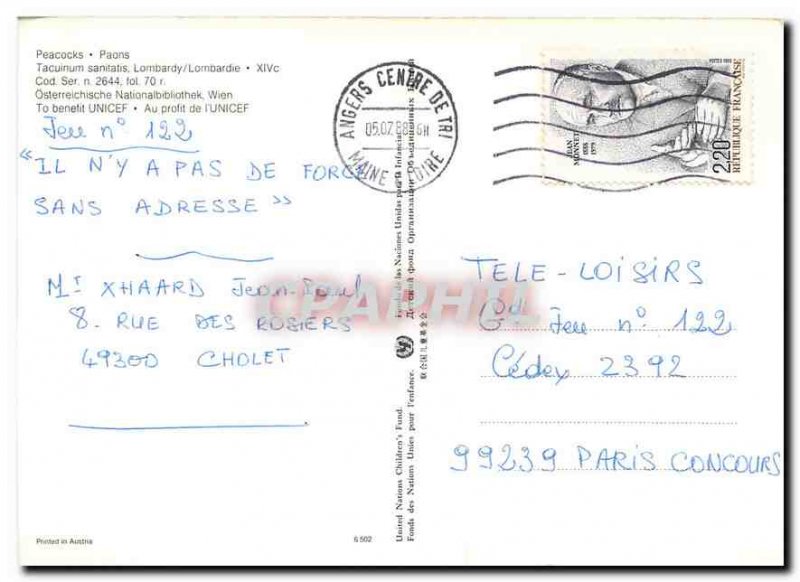 Peacocks • Paons
Tacuinum sanitatis, Lombardy/Lombardie • XIVc
Cod. Ser. n. 2644, fol. 70 r.
Österreichische Nationalbibliothek, Wien
To benefit UNICEF • Au profit de l'UNICEF
Jeu n° 122
"IL N'Y A PAS DE FORCE
SANS ADRESSE"
Mr XHAARD Jean-Paul
8. RUE DES ROSIERS
49300 CHOLET
Printed in Austria
6 502
ANGERS CENTRE DE TRI
MAINE LOIRE
United Nations Children's Fund.
Fonds des Nations Unies pour l'enfance.
Fondo de las Naciones Unidas para la Infancia.
Детский фонд Организации Объединенных
联合国儿童基金会
JEAN
MONNET
1888
1979
2,20
REPUBLIQUE FRANÇAISE
TELE-LOISIRS
Gd Jeu n° 122
Cédex 2392
99239 PARIS CONCOURS
CPARHIL